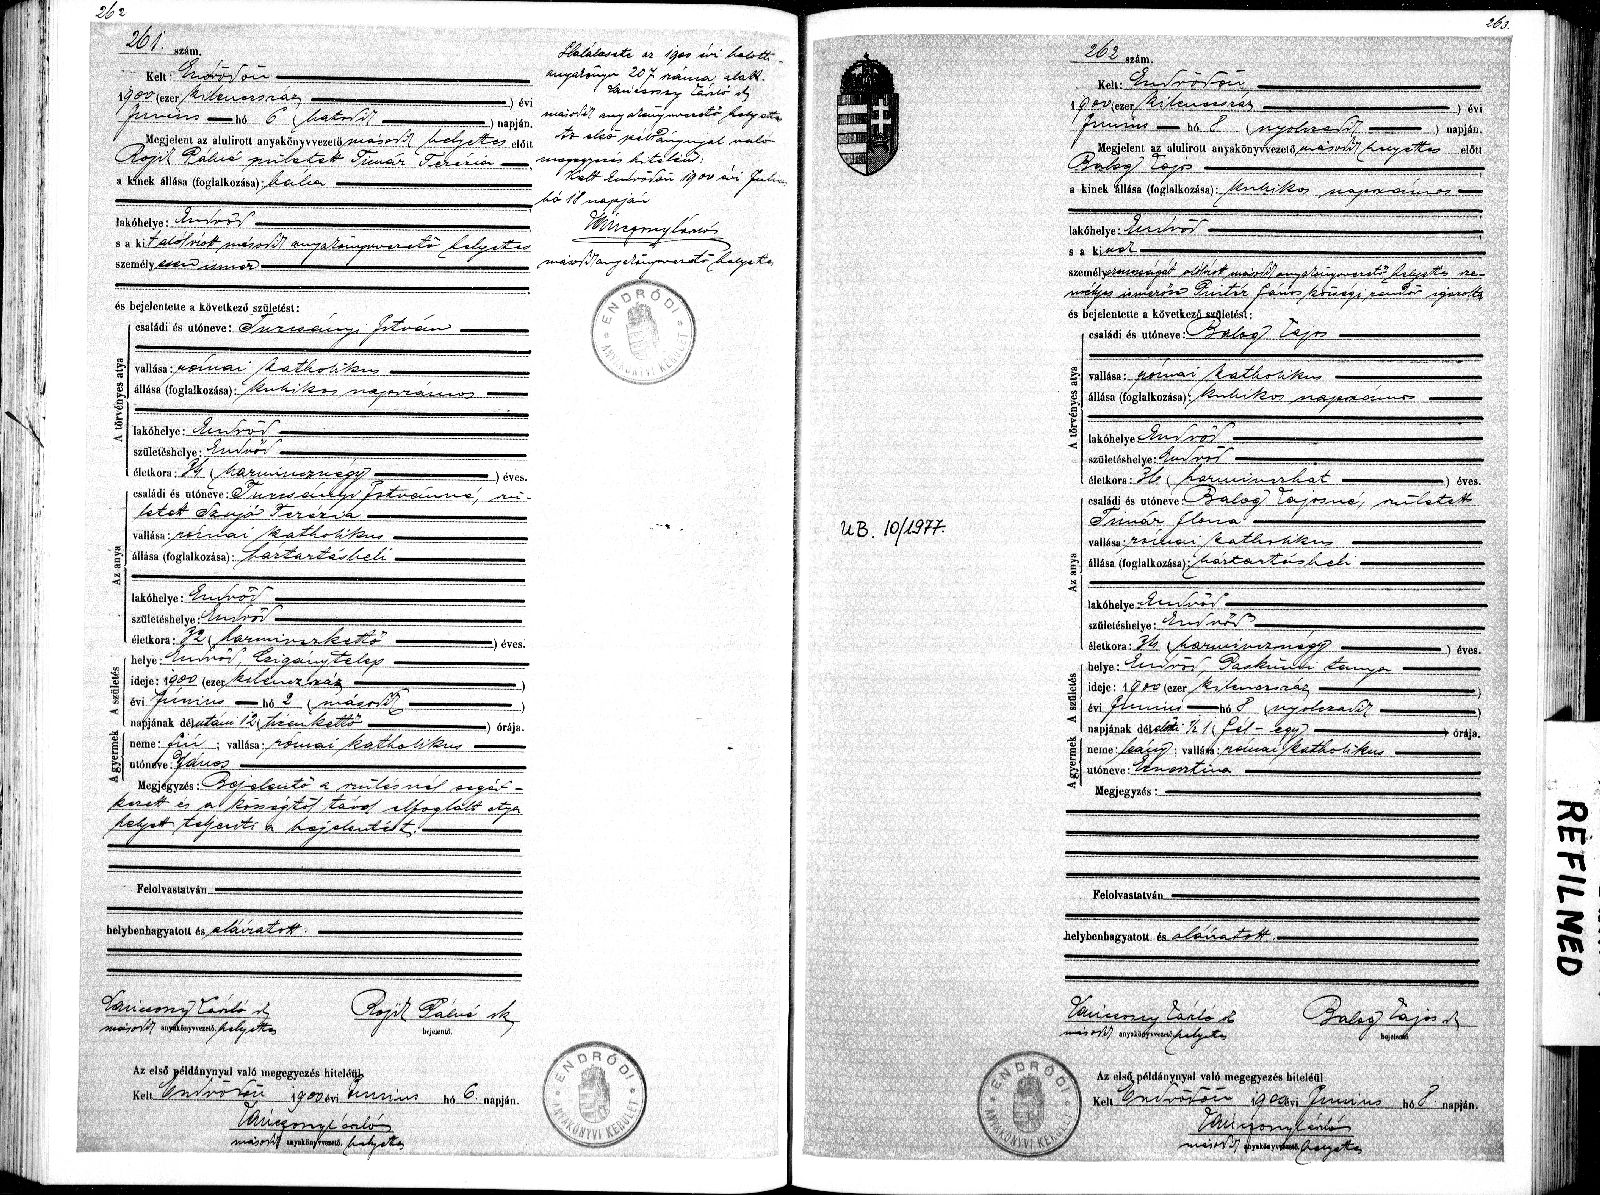 262
261. szám.
Kelt: Endrődön
1900 (ezer kilenczszáz ) évi
Június hó 6 ( hatodik ) napján.
Megjelent az alulirott anyakönyvvezető másodh helyettes előtt
Rojik Pálné született Timár Terézia
a kinek állása (foglalkozása): bába
lakóhelye: Endrőd
s a kit alólírott másodh anyakönyvvezető helyettes
személyesen ismer
és bejelentette a következő születést:
A törvényes atya
családi és utóneve: Turcsányi István
vallása: római katholikus
állása (foglalkozása): kubikos napszámos
lakóhelye: Endrőd
születéshelye: Endrőd
életkora: 34 ( harmincznégy ) éves.
Az anya
családi és utóneve: Turcsányi Istvánné, szü-
letett Szujó Terézia
vallása: római katholikus
állása (foglalkozása): háztartásbeli
lakóhelye: Endrőd
születéshelye: Endrőd
életkora: 32 ( harminczkettő ) éves.
A születés
helye: Endrőd, Czigánytelep
ideje: 1900 (ezer kilenczszáz )
évi Június hó 2 ( második )
napjának délutáni 12 ( tizenkettő ) órája.
A gyermek
neme: fiú ; vallása: római katholikus
utóneve: János
Megjegyzés: Bejelentő a szülésnél segéd-
kezett és a községtől távol elfoglalt atya
helyett teljesíti a bejelentést.
Felolvastatván
helybenhagyatott és aláiratott.
másodh anyakönyvvezető helyettes
Rojik Pálné sk
bejelentő.
Az első példánynyal való megegyezés hiteléül
Kelt Endrődön 1900 évi Június hó 6. napján.
másodh anyakönyvvezető. helyettes
ENDRŐDI ANYAKÖNYVI KERÜLET
Halálesete az 1900 évi halotti
anyakönyv 207 száma alatt.
másodh anyakönyvvezető helyettes
Az első példánynyal való
megegyezés hiteléül:
Kelt Endrődön 1900 évi
hó 18 napján
másodh anyakönyvvezető helyettes
ENDRŐDI ANYAKÖNYVI KERÜLET
263.
262 szám.
Kelt: Endrődön
1900 (ezer kilenczszáz ) évi
Június hó 8 ( nyolczadik ) napján.
Megjelent az alulirott anyakönyvvezető másodh helyettes előtt
Balog Lajos
a kinek állása (foglalkozása): kubikos napszámos
lakóhelye: Endrőd
s a kinek
személyazonosságát alólírott másodh anyakönyvvezető helyettes sze-
mélyes ismerőse Pintér János községi rendőr igazolta
és bejelentette a következő születést:
A törvényes atya
családi és utóneve: Balog Lajos
vallása: római katholikus
állása (foglalkozása): kubikos napszámos
lakóhelye: Endrőd
születéshelye: Endrőd
életkora: 36 ( harminczhat ) éves.
Az anya
családi és utóneve: Balog Lajosné, született
Timár Ilona
vallása: római katholikus
állása (foglalkozása): háztartásbeli
lakóhelye: Endrőd
születéshelye: Endrőd
életkora: 34 ( harmincznégy ) éves.
A születés
helye: Endrőd, Paskumi tanya
ideje: 1900 (ezer kilenczszáz )
évi Június hó 8 ( nyolczadik )
napjának délelőtti ½ 1 ( fél-egy ) órája.
A gyermek
neme: leány ; vallása: római katholikus
utóneve: Ernesztina
Megjegyzés:
Felolvastatván
helybenhagyatott és aláiratott.
másodh anyakönyvvezető helyettes
Balog Lajos sk
bejelentő
Az első példánynyal való megegyezés hiteléül
Kelt Endrődön 1900 évi Június hó 8. napján.
másodh anyakönyvvezető. helyettes
ENDRŐDI ANYAKÖNYVI KERÜLET
UB. 10/1977.
REFILMED